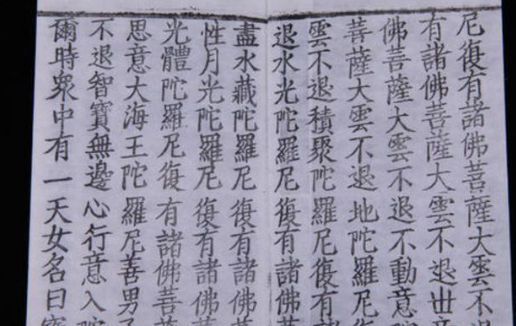 尼復有諸佛菩薩大雲不
有諸佛菩薩大雲不退世
佛菩薩大雲不退不動意
菩薩大雲不退地陀羅尼
雲不退積聚陀羅尼復有
退水光陀羅尼復有諸佛
盡水藏陀羅尼復有諸佛
性月光陀羅尼復有諸佛
光體陀羅尼復有諸佛菩
思意大海王陀羅尼善男
不退智寶無邊心行意入
爾時衆中有一天女名曰